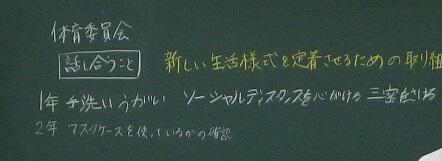 体育委員会
話し合うこと 新しい生活様式を定着させるための取り組
1年 手洗いうがい ソーシャルディスタンスを心がける 三密をさける
2年 マスクケースを使っているかの確認